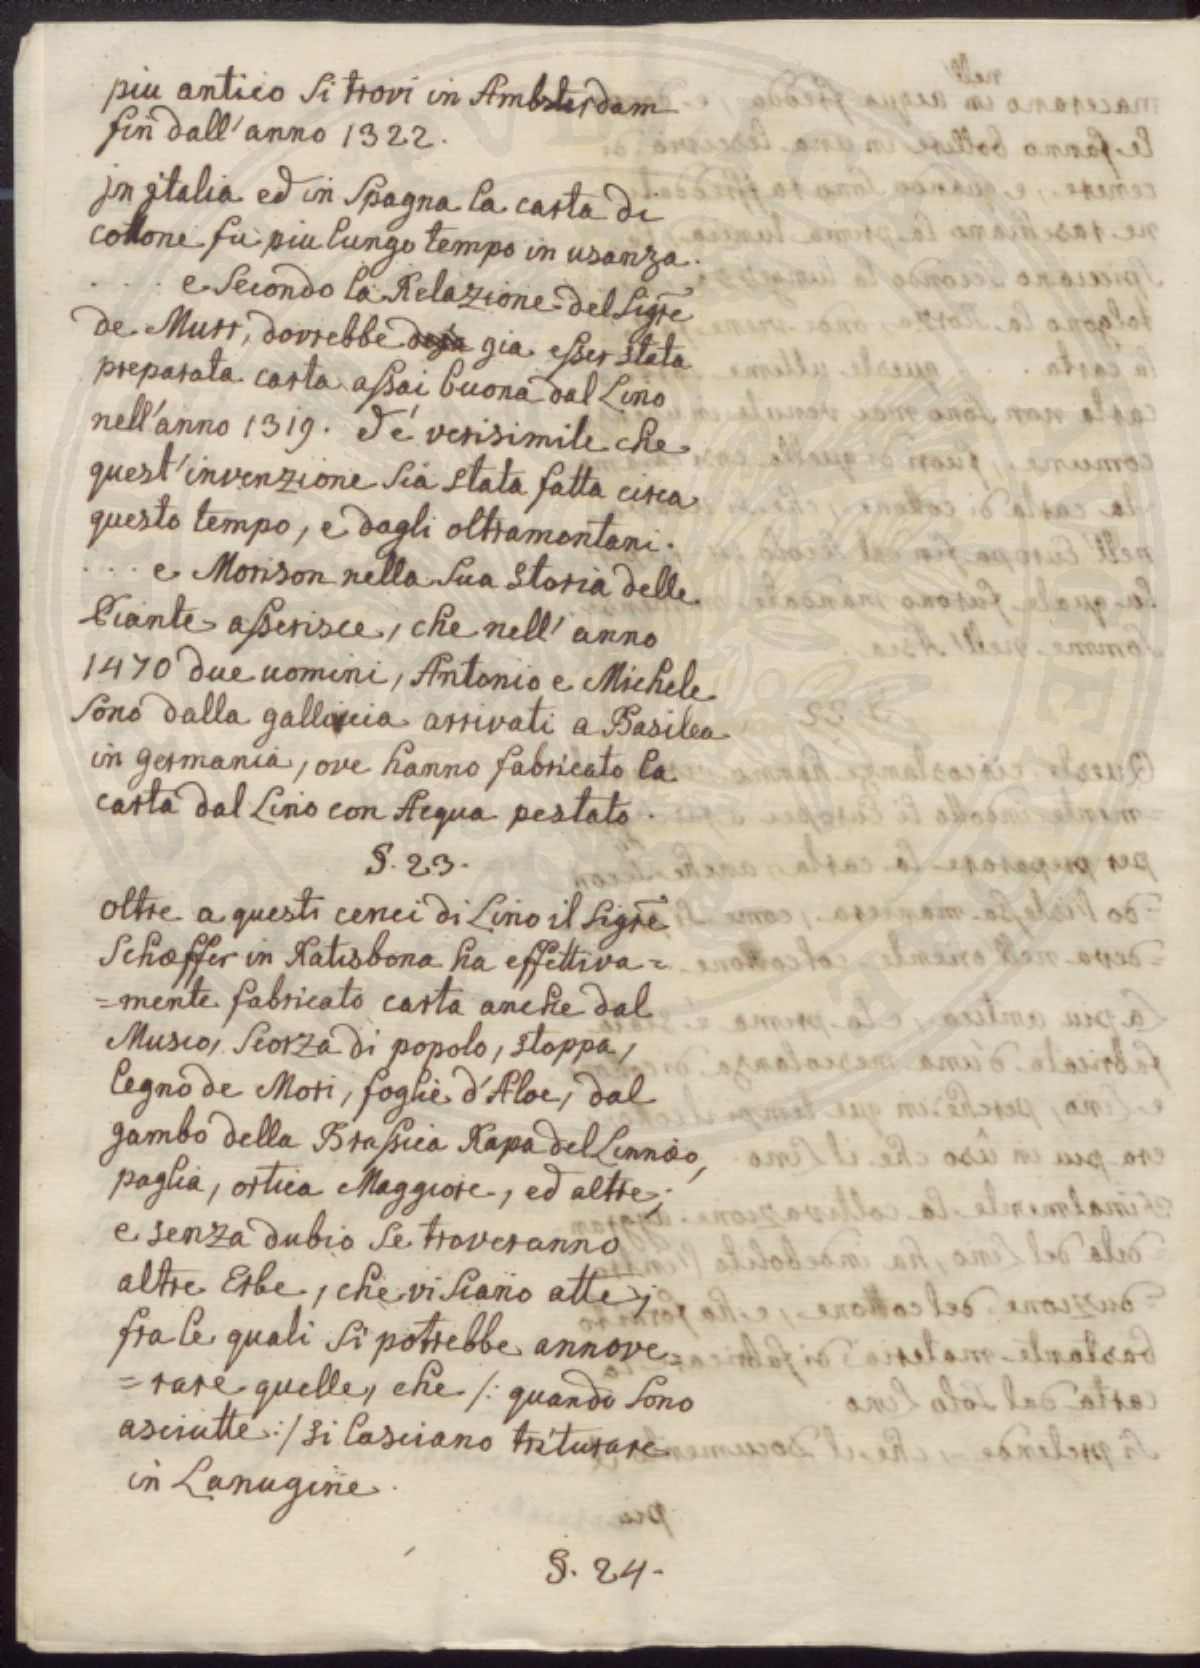 piu antico si trovi in Ambsterdam
fin dall' anno 1322.
jn jtalia ed in Spagna la carta di
cottone fu piu lungo tempo in usanza.
. . . . e secondo la Relazione del Sigre
de Murr, dovrebbe gia esser stata
preparata carta assai buona dal Lino
nell'anno 1319. Ed é verisimile che
quest' invenzione sia stata fatta circa
questo tempo, e dagli oltramontani.
. . . . e Morison nella sua storia delle
Piante asserisce, che nell' anno
1470 due uomini, Antonio e Michele
sono dalla gallicia arrivati a Basilea
in germania, ove hanno fabricato la
carta dal Lino con Acqua pestato.
§. 23.
oltre a questi cenci di Lino il Sigre
Schæffer in Ratisbona ha effettiva=
=mente fabricato carta anche dal
Musco, scorza di popolo, stoppa,
legno de Mori, foglie d'Aloe, dal
gambo della Brassica Rapa del Linnæo,
paglia, ortica Maggiore, ed altre;
e senza dubio se troveranno
altre Erbe, che vi siano atte;
fra le quali si potrebbe annove=
=rare quelle, che /: quando sono
asciutte :/ si lasciano triturare
in Lanugine.
§. 24.